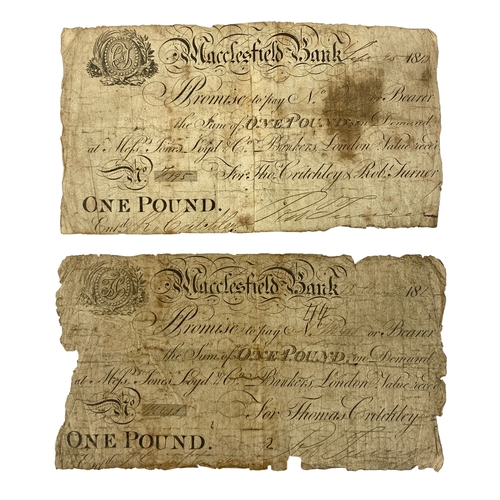 Macclesfield Bank 18
I Promise to pay No or Bearer
the Sum of ONE POUND on Demand
at Messrs Jones Loyd & Co Bankers London Value recd
No
For Thos. Critchley & Robt. Turner
ONE POUND.
Entd
Macclesfield Bank 18
44
I Promise to pay No or Bearer
the Sum of ONE POUND on Demand
at Messrs Jones Loyd & Co Bankers London Value recd
No
For Thomas Critchley
ONE POUND. 2
Entd